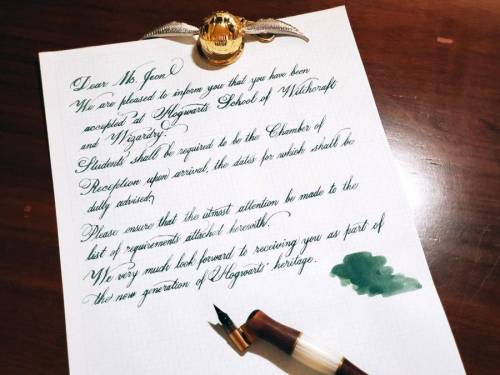 Dear Ms. Jeon
We are pleased to inform you that you have been
accepted at Hogwarts School of Witchcraft
and Wizardry.
Students shall be required to be the Chamber of
Reception upon arrival, the dates for which shall be
dully advised,
Please ensure that the utmost attention be made to the
list of requirements attached herewith.
We very much look forward to receiving you as part of
the new generation of Hogwarts' heritage.